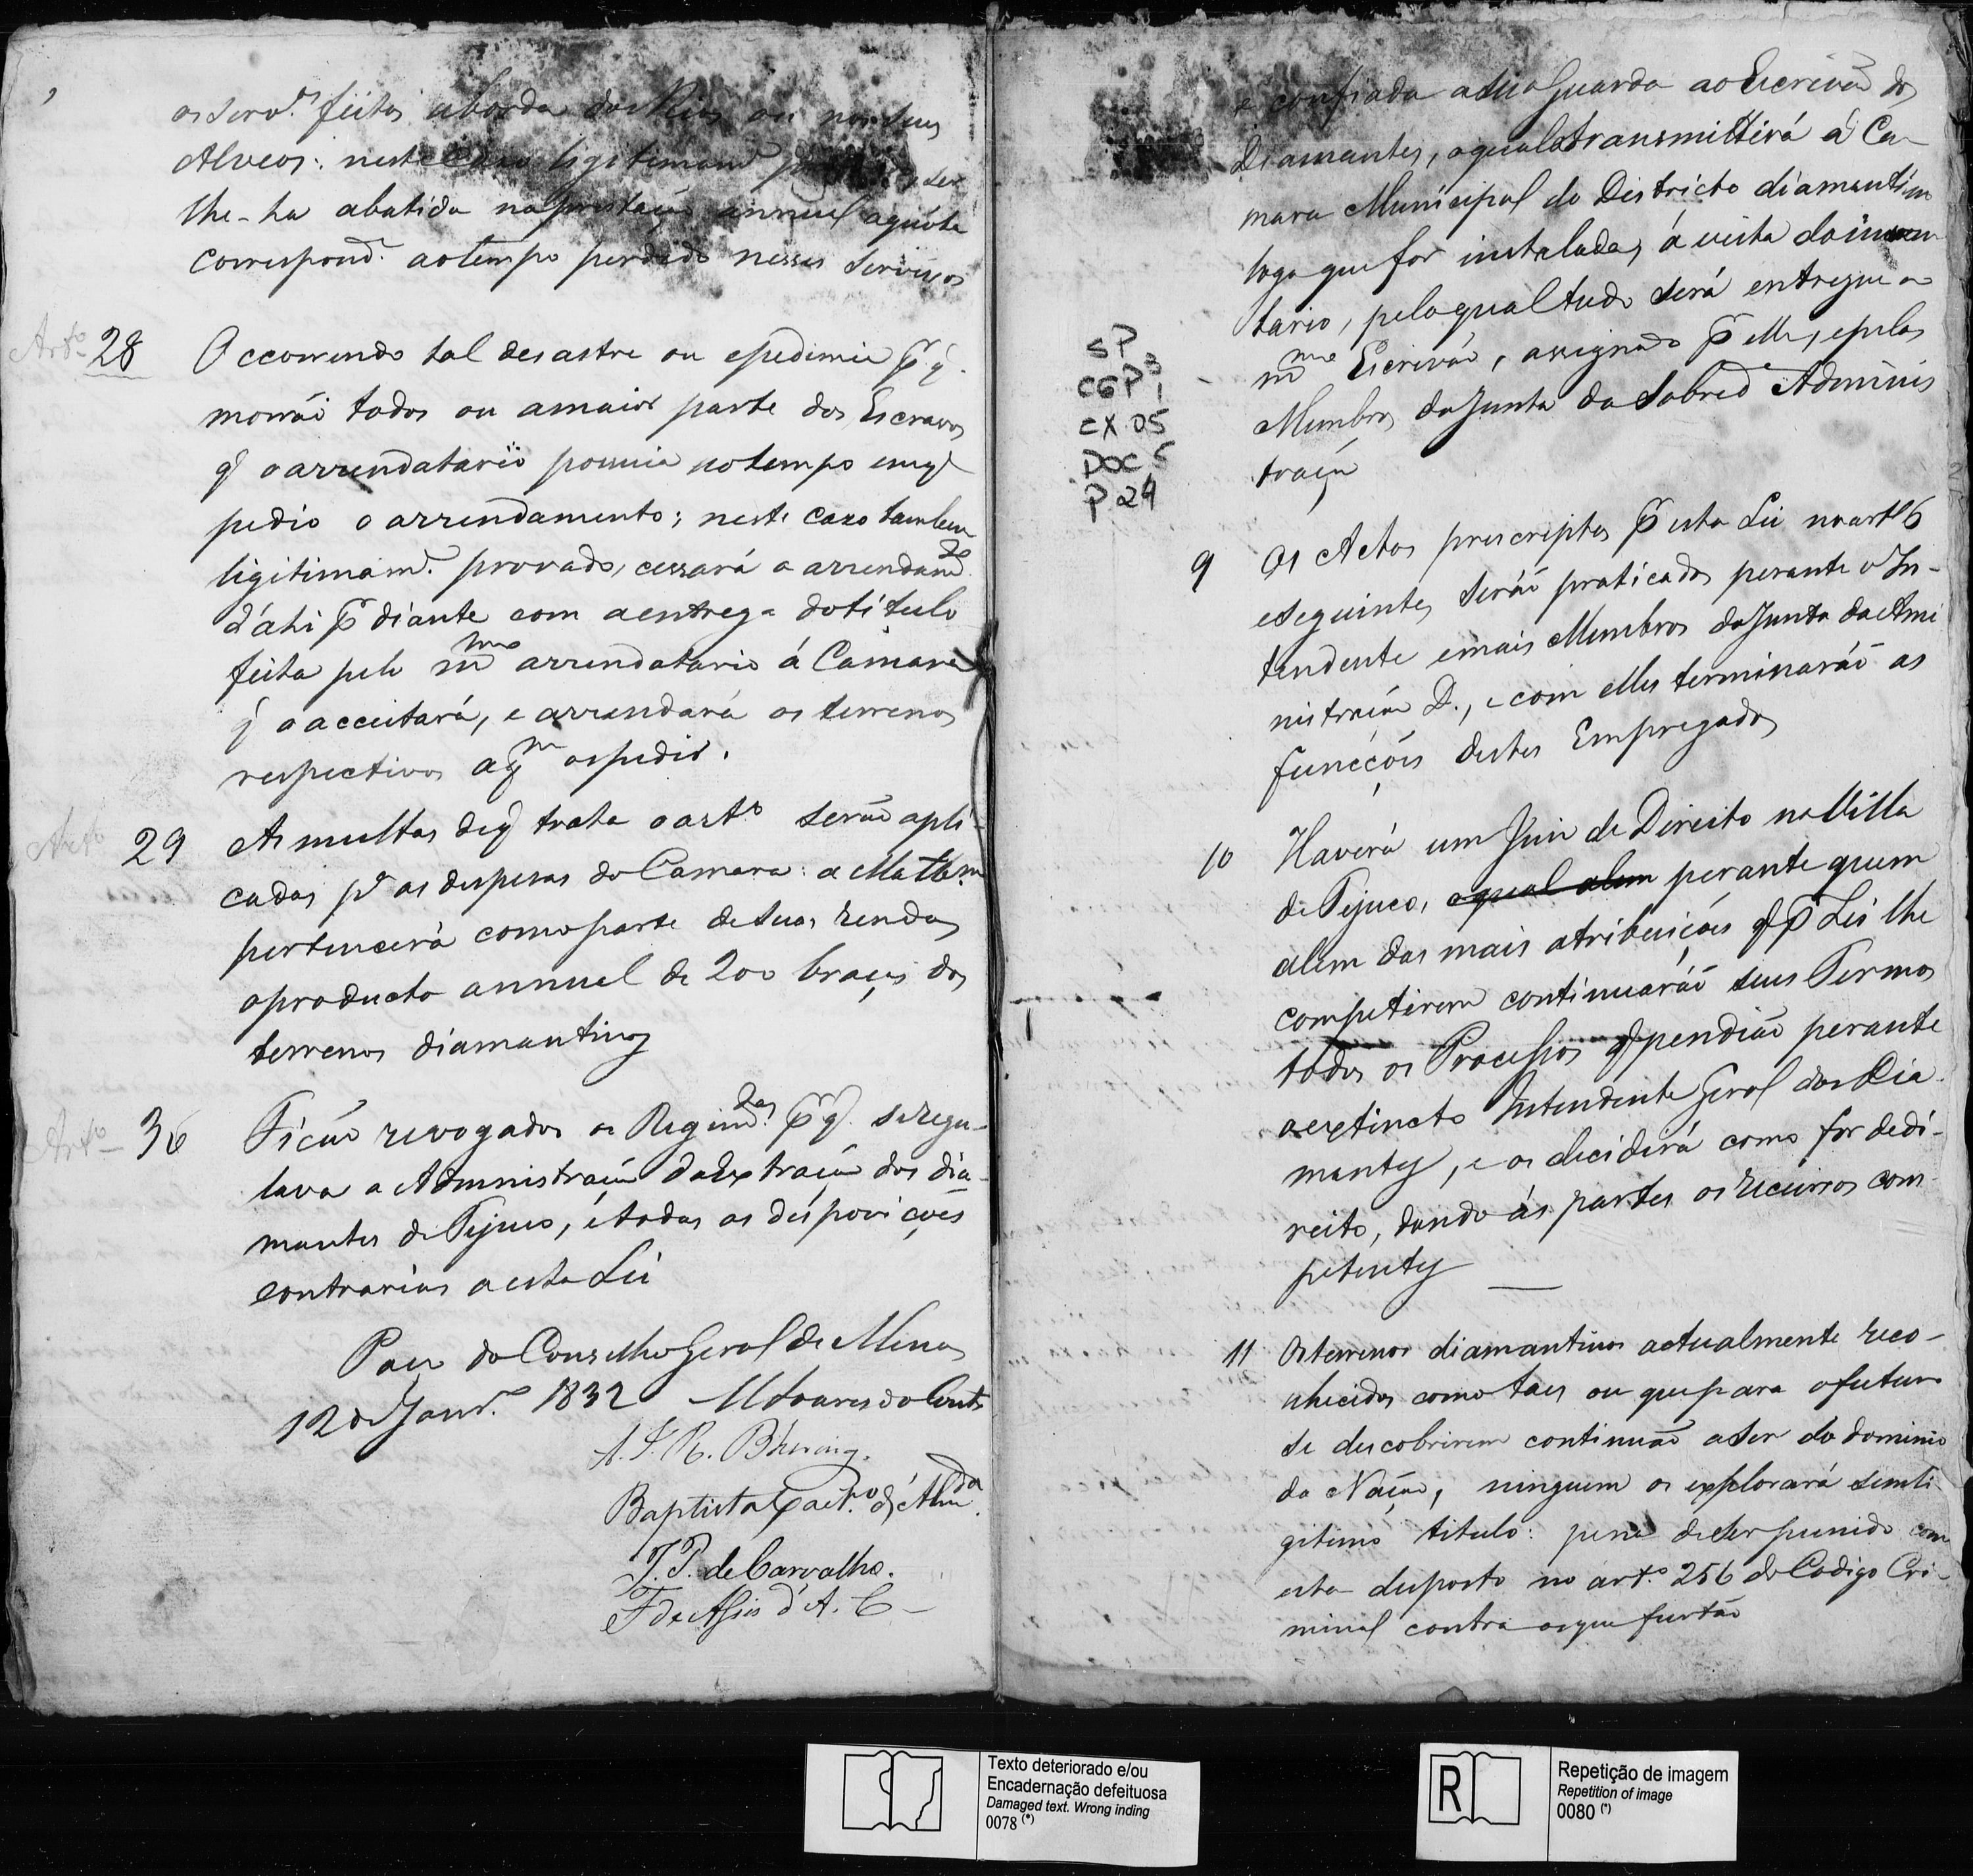 os serv.os feitos a borda dos Rios ou nos seus
Alveos: neste caso legitimam.e ser
lhe-ha abatida na prestação annual aquóta
correspond.e ao tempo perdido nesses serviços
Art.o 28 Occorrendo tal desastre ou epedimia p q.
morrão todos ou a maior parte dos Escravos
q o arrendatario possuia ao tempo em q
pedio o arrendamento; neste caso tambem
ligitimam.e provado, cessará o arrendam.to
d'áhi p diante com a entrega do titulo
feita pelo m.mo arrendatario á Camara
q o acceitará, e arrendará os terrenos
respectivos a q.m os pedir.
Art.o 29 As multas de q trata o art.o serão apli-
cadas p.a as despesas da Camara: a M
pertencerá como parte de suas rendas
o producto annual de 200 braças dos
terrenos diamantinos
Art.o 30 Ficão revogados os Regim.tos p q. se regu-
lava a Administração da Extração dos dia-
mantes de Tejuco, e todas as disposições
contrarias a esta Lei
Paço do Conselho Geral de Minas
12 de Janr.o 1832 M Soares do Couto
A. J. R. Bhering.
Baptista Caet.no d'Alm.da
J. P. de Carvalho.
F de Assis d'A. C
SP
CGP 3
1
CX 05
DOC 5
P 24
e confiada a sua guarda ao Escrivão dos
Diamantes, o qual a transmittirá á Ca-
mara Municipal do Districto diamantino
logo que for instalada, á vista do inven-
tario, pelo qual tudo será entregue ao
m.mo Escrivão, assignado p elle, e pelos
Membros da Junta da sobred.a Adminis
tração
9 Os Actos prescriptos p esta Lei no art.o 6
e seguintes serão praticados perante o In-
tendente e mais Membros da Junta da Ami
nistração D., e com elles terminarão as
funcções destes Empregados
10 Haverá um Juiz de Direito na Villa
de Tejuco, o qual alem perante quem
alem das mais atribuições q p Lei lhe
competirem continuarão seus Termos
todos os Processos q pendião perante
o extincto Intendente Geral dos Dia-
mantes, e os decidirá como for de di-
reito, dando ás partes os recursos com-
petentes
11 Os terrenos diamantinos actualmente reco-
nhecidos como taes ou que para o futuro
se descobrirem continuão a ser do dominio
da Nação, ninguem os explorará sem li-
gitimo titulo: pena de ser punido com
esta disposto no art.o 256 do Codigo Cri-
minal contra os que furtão
Texto deteriorado e/ou
Encadernação defeituosa
Damaged text. Wrong inding
0078 (*)
R
Repetição de imagem
Repetition of image
0080 (*)